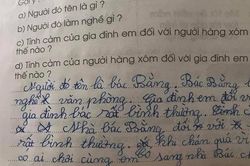 Gợi ý :
a) Người đó tên là gì ?
b) Người đó làm nghề gì ?
c) Tình cảm của gia đình em đối với người hàng xóm
thế nào ?
d) Tình cảm của người hàng xóm đối với gia đình em
thế nào ?
Người đó tên là bác Bằng. Bác Bằng
nghề văn phòng. Gia đình em đối
gia đình bác rất bình thường. Tình
Nhà bác Bằng đối với
rất bình thường. khi chán quá
ai chơi cùng em sang nhà Bác